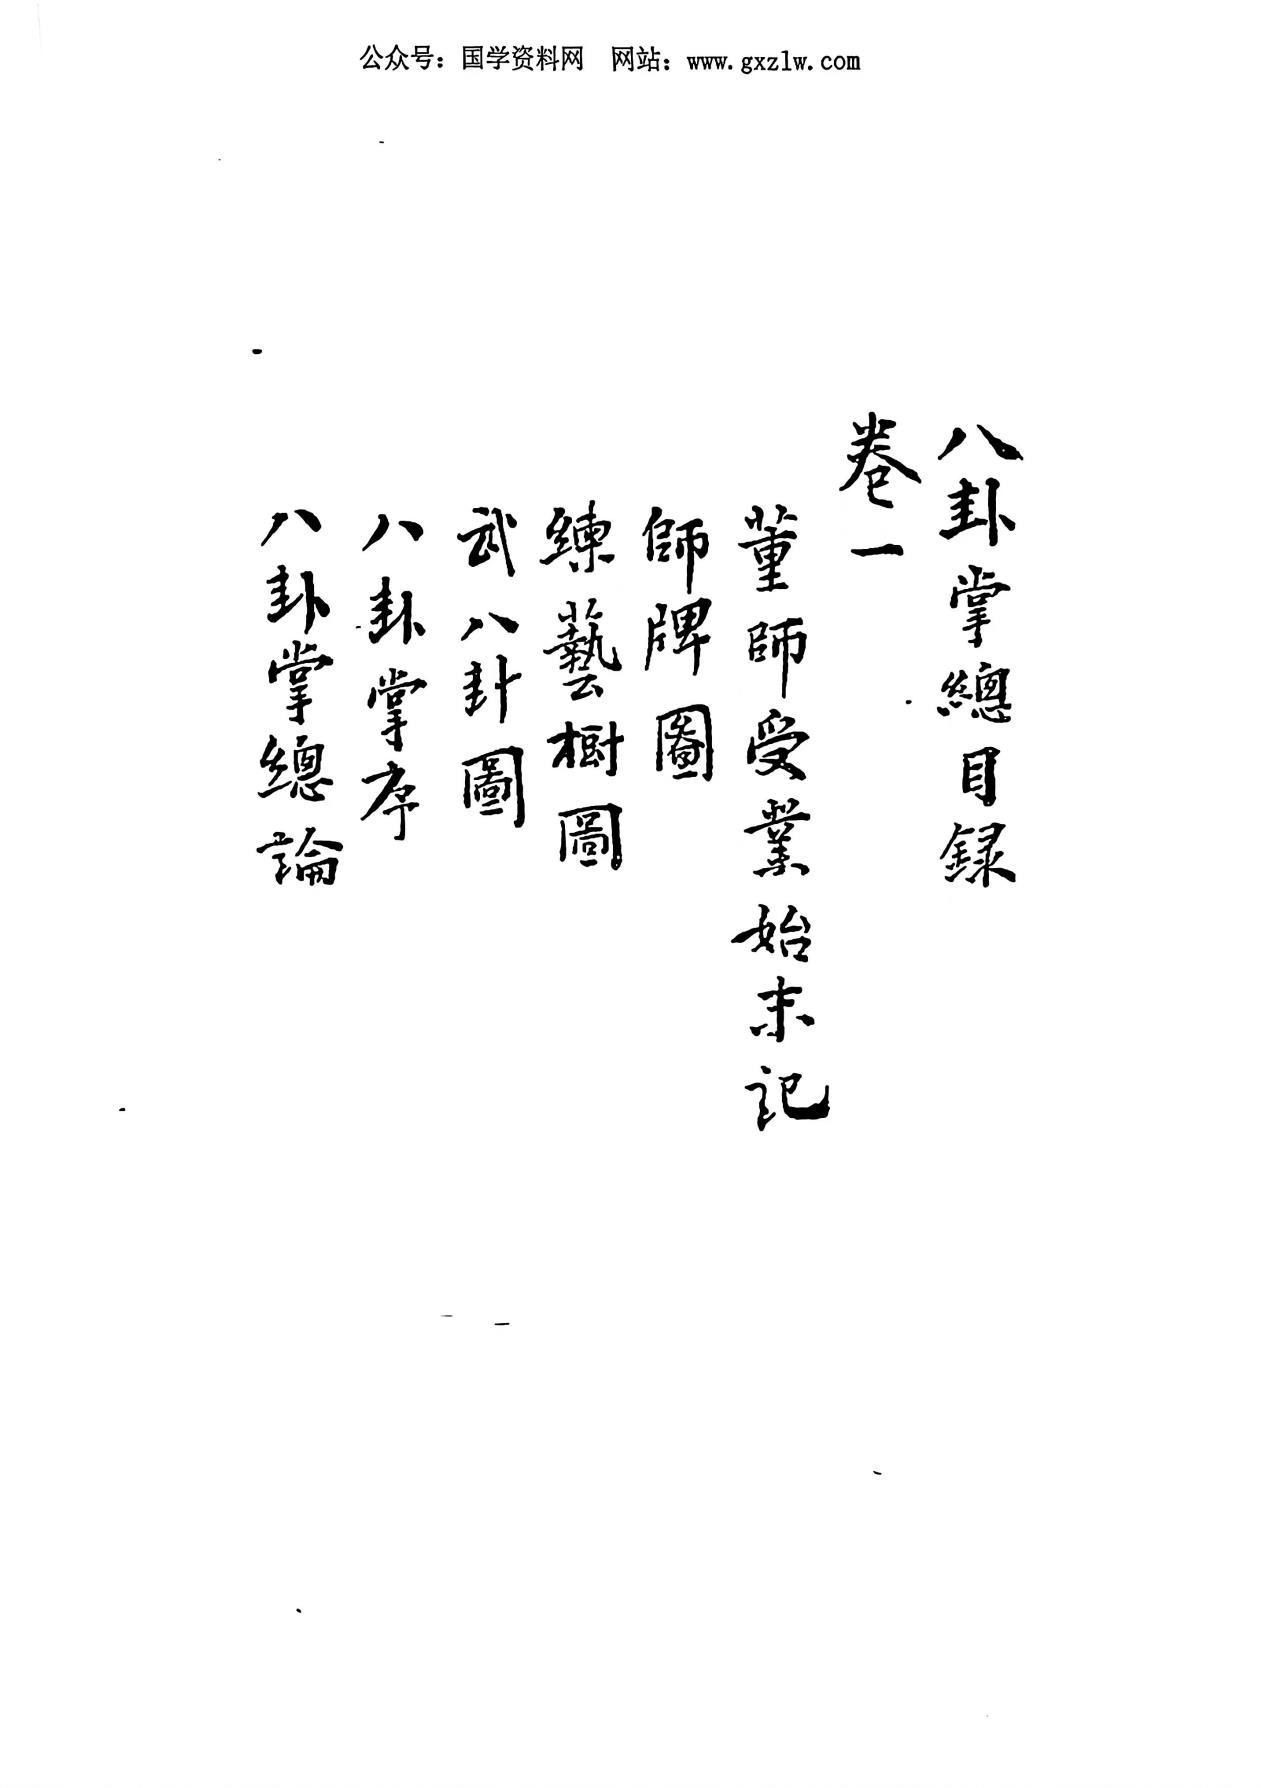 公众号：国学资料网　网站：www.gxzlw.com
八卦掌總目録
卷一
董師受業始末記
師牌圖
練藝樹圖
武八卦圖
八卦掌序
八卦掌總論